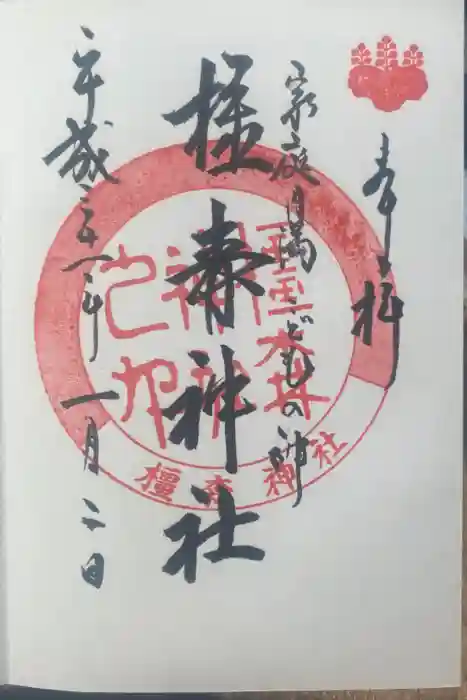 奉拝
家庭円満 こどもの神
橿森神社
平成三十一年 一月二日
橿森神社